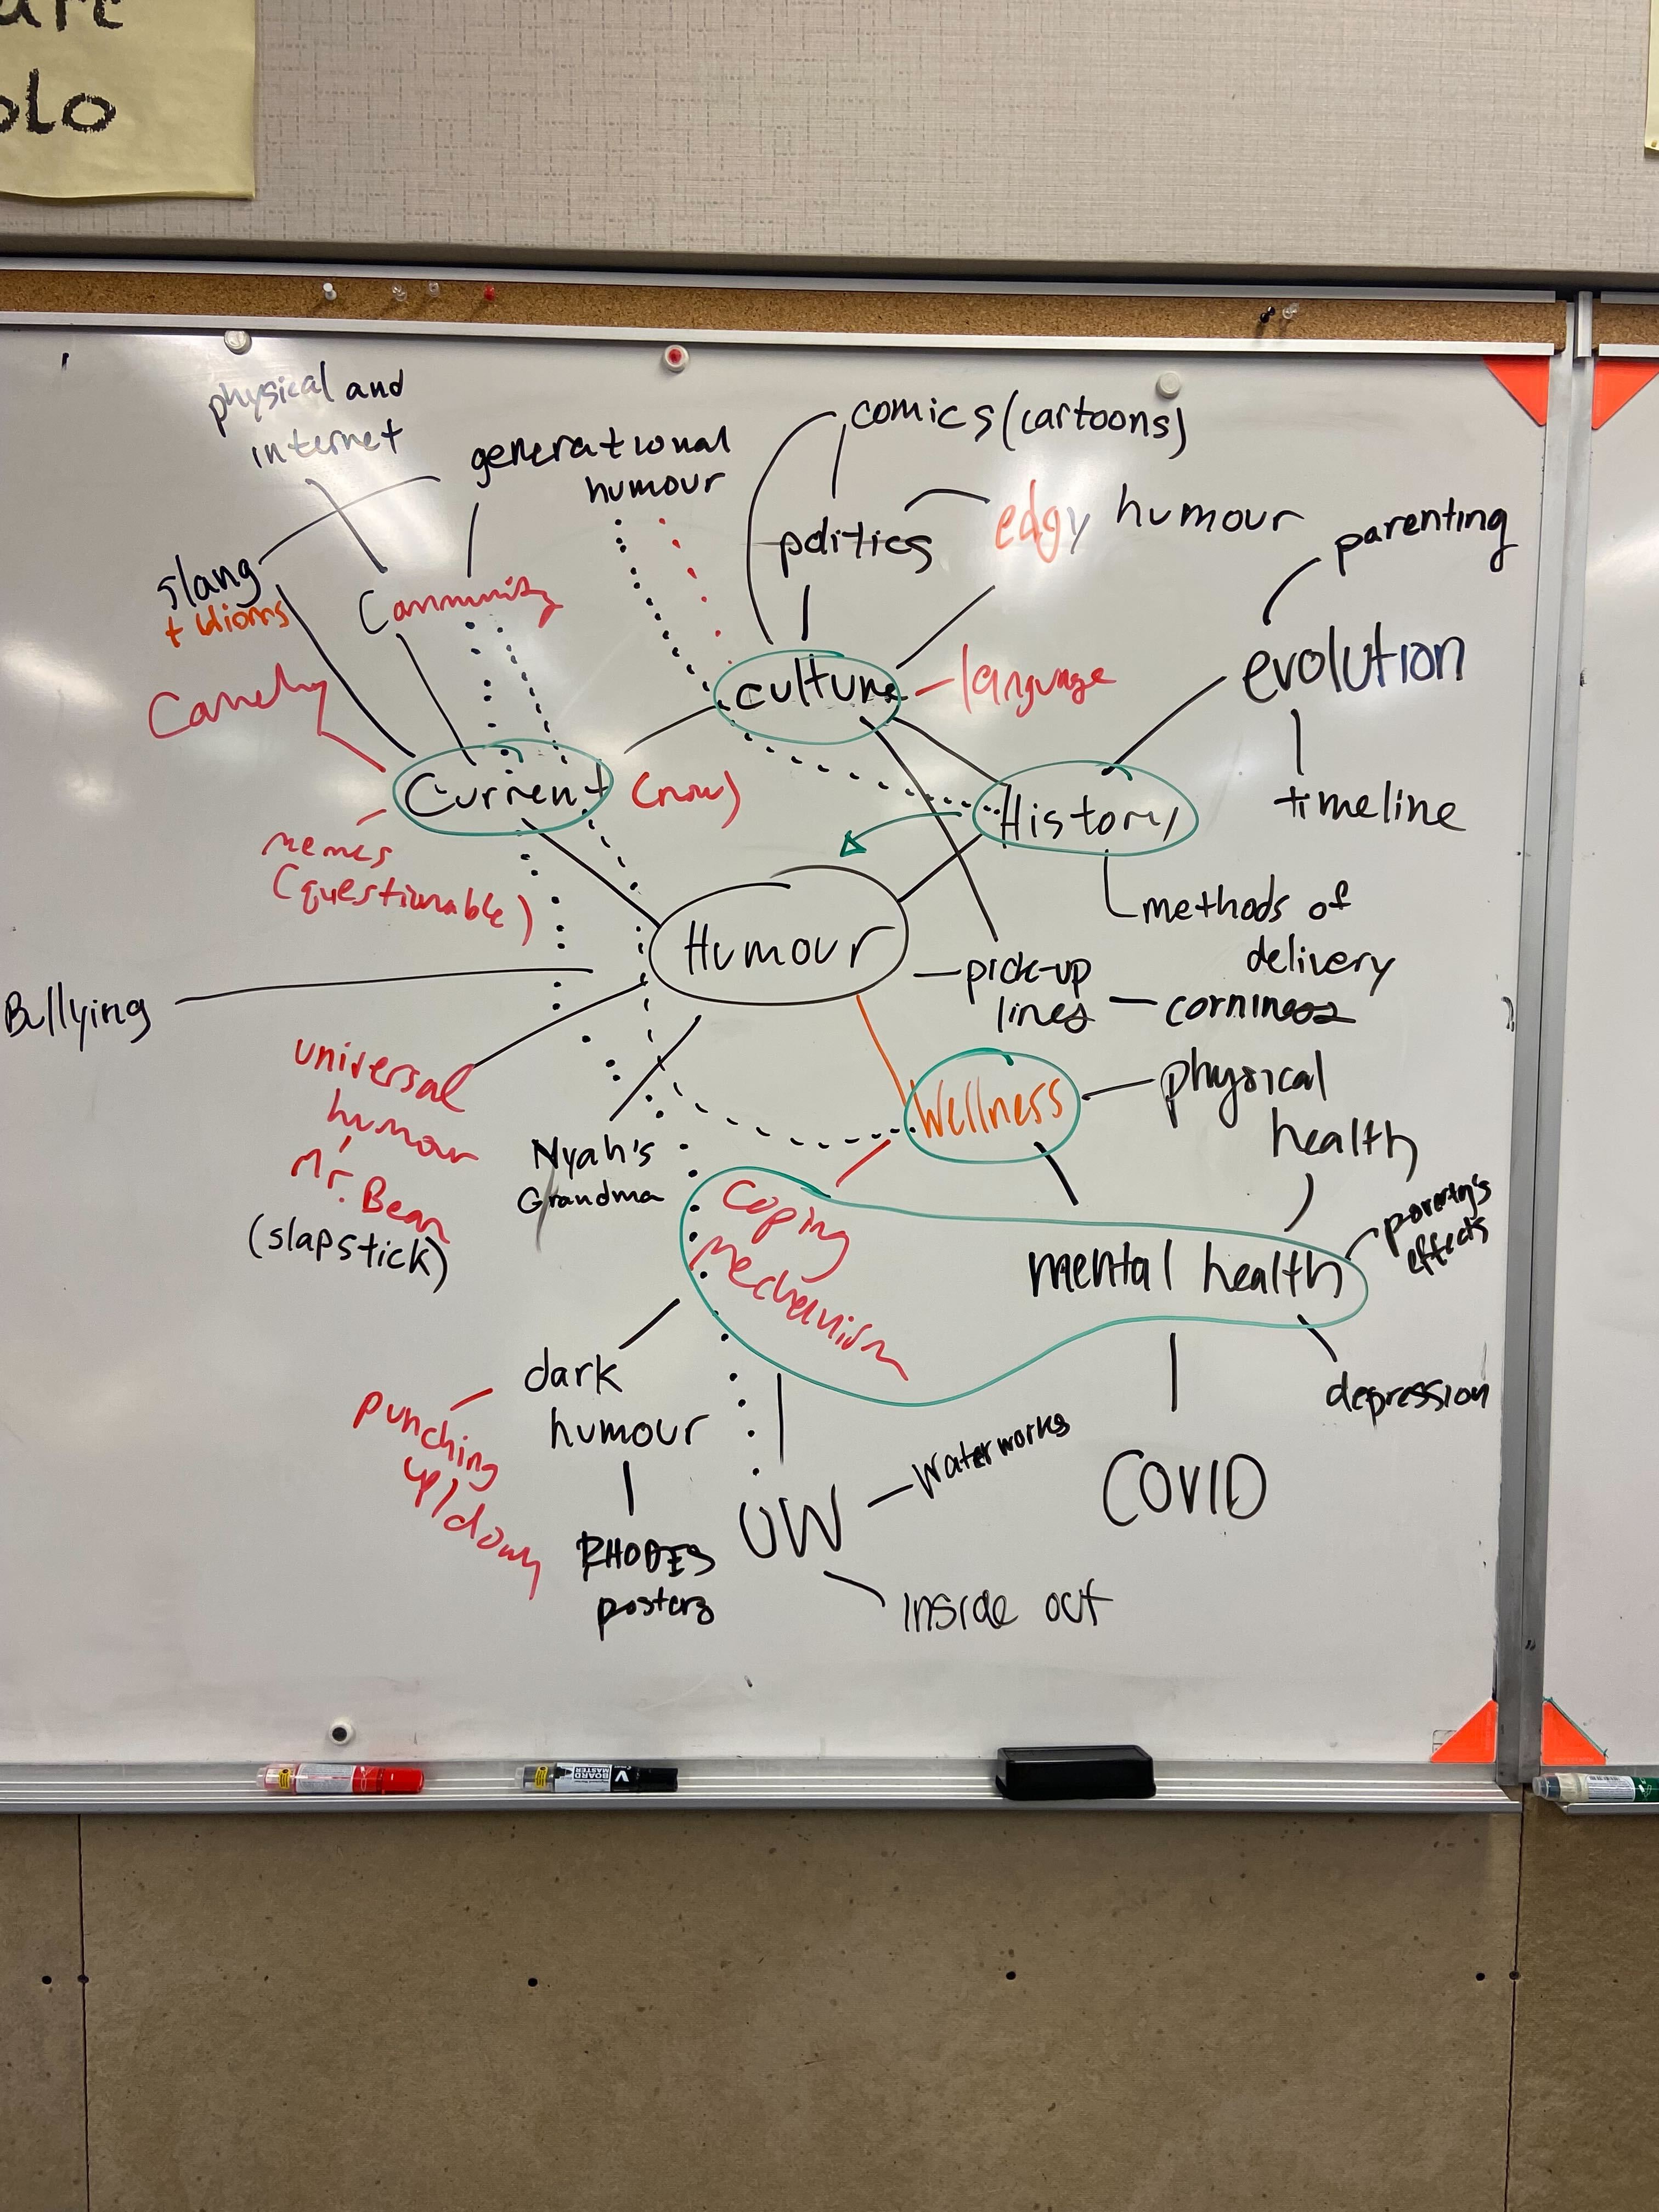 olo
physical and
internet
generational
humour
comics (cartoons)
politics
edgy humour
parenting
slang
+ idioms
Community
evolution
culture
language
Comedy
Current (now)
History
timeline
memes
(questionable)
methods of
delivery
Humour
pick-up
lines
corniness
Bullying
universal
humour
Mr. Bean
(slapstick)
Nyah's
Grandma
Wellness
physical
health
Coping
Mechanism
mental health
effects
depression
dark
humour
punching
up/down
RHODES
posters
UW
Waterworks
inside out
COVID
BOARD
MASTER
V